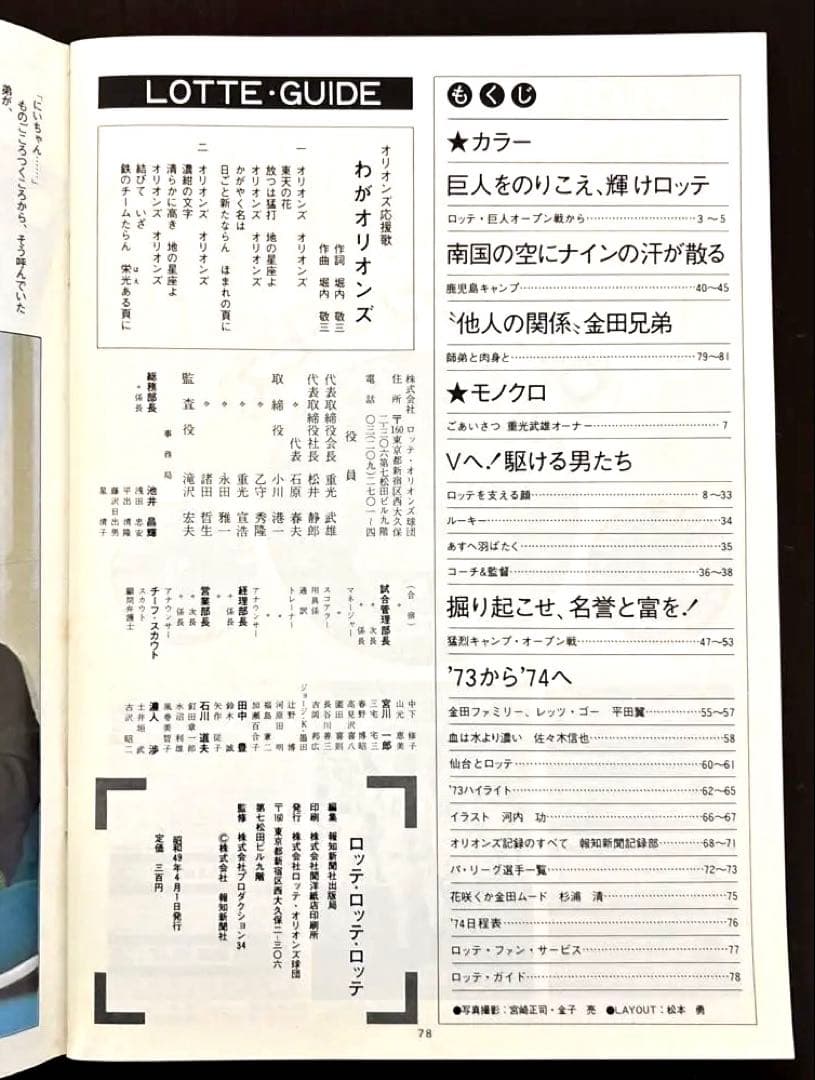 「にいちゃん……」
ものごころつくころから、そう呼んでいた
弟が、
もくじ
★カラー
巨人をのりこえ、輝けロッテ
ロッテ・巨人オープン戦から……3〜5
南国の空にナインの汗が散る
鹿児島キャンプ……40〜45
〝他人の関係〟金田兄弟
師弟と肉身と……79〜81
★モノクロ
ごあいさつ 重光武雄オーナー……7
Vへ！駆ける男たち
ロッテを支える顔……8〜33
ルーキー……34
あすへ羽ばたく……35
コーチ&監督……36〜38
掘り起こせ、名誉と富を！
猛烈キャンプ・オープン戦……47〜53
'73から'74へ
金田ファミリー、レッツ・ゴー 平田翼……55〜57
血は水より濃い 佐々木信也……58
仙台とロッテ……60〜61
'73ハイライト……62〜65
イラスト 河内 功……66〜67
オリオンズ記録のすべて 報知新聞記録部……68〜71
パ・リーグ選手一覧……72〜73
花咲くか金田ムード 杉浦 清……75
'74日程表……76
ロッテ・ファン・サービス……77
ロッテ・ガイド……78
●写真撮影：宮崎正司・金子 亮 ●LAYOUT：松本 勇
LOTTE・GUIDE
オリオンズ応援歌
わがオリオンズ
作詞 堀内 敬三
作曲 堀内 敬三
一 オリオンズ オリオンズ
東天の花
放つは猛打 地の星座よ
オリオンズ オリオンズ
かがやく名は
日ごと新たならん ほまれの頁に
二 オリオンズ オリオンズ
濃紺の文字
清らかに高き 地の星座よ
オリオンズ オリオンズ
結びて いざ
鉄のチームたらん 栄光ある頁に
はえ
株式会社 ロッテ・オリオンズ球団
住所 〒160東京都新宿区西大久保
二-三〇六第七松田ビル九階
電話 〇三(二〇九)二七〇一〜四
役員
代表取締役会長 重光 武雄
代表取締役社長 松井 静郎
代表 石原 春夫
取締役 小川 港一
〃 乙守 秀隆
〃 重光 宣浩
〃 永田 雅一
〃 諸田 哲生
監査役 滝沢 宏夫
事務局
総務部長 池井 昌輝
〃係長 浅田 忠安
平出 清隆
藤沢日出男
星 清子
(合宿) 中下 修子
〃 山元 恵美
試合管理部長 宮川 一郎
〃次長 三宅 宅三
〃係長 春野 博昭
マネージャー 高見沢喜八
〃 園田 喜則
スコアラー 長谷川善三
用具係 吉岡 邦広
通訳 ジョージ・K・墨田
トレーナー 辻野 博
〃 河原田 明
〃 福島 兼二
アナウンサー 加瀬百合子
経理部長 田中 豊
〃係長 鈴木 誠
矢作 従子
営業部長 石川 道夫
〃次長 釘田章一郎
〃係長 水沼 利雄
アナウンサー 風巻美智子
チーフ・スカウト 濃人 渉
スカウト 土井垣 武
顧問弁護士 古沢 昭二
ロッテ・ロッテ・ロッテ
編集 報知新聞社出版局
印刷 株式会社関洋紙店印刷所
発行 株式会社ロッテ・オリオンズ球団
〒160 東京都新宿区西大久保二-三〇六
第七松田ビル九階
監修 株式会社プロダクション34
©株式会社 報知新聞社
昭和49年4月1日発行
定価 三百円
78